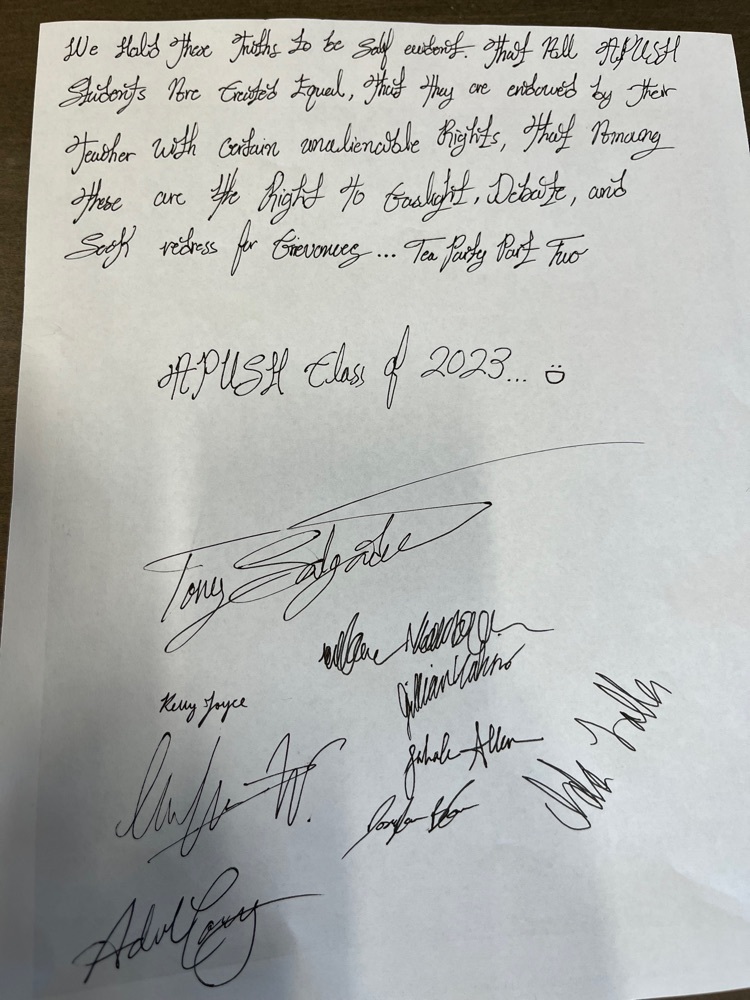 We Hold These Truths to be Self evident. That All APUSH
Students Are Created Equal, that they are endowed by Their
Teacher with certain unalienable Rights, that Among
these are the Right to Gaslight, Debate, and
Seek redress for Grievances... Tea Party Part Two
APUSH Class of 2023... :D
Tony Salgado
Jillian
Kelly Joyce
Allen